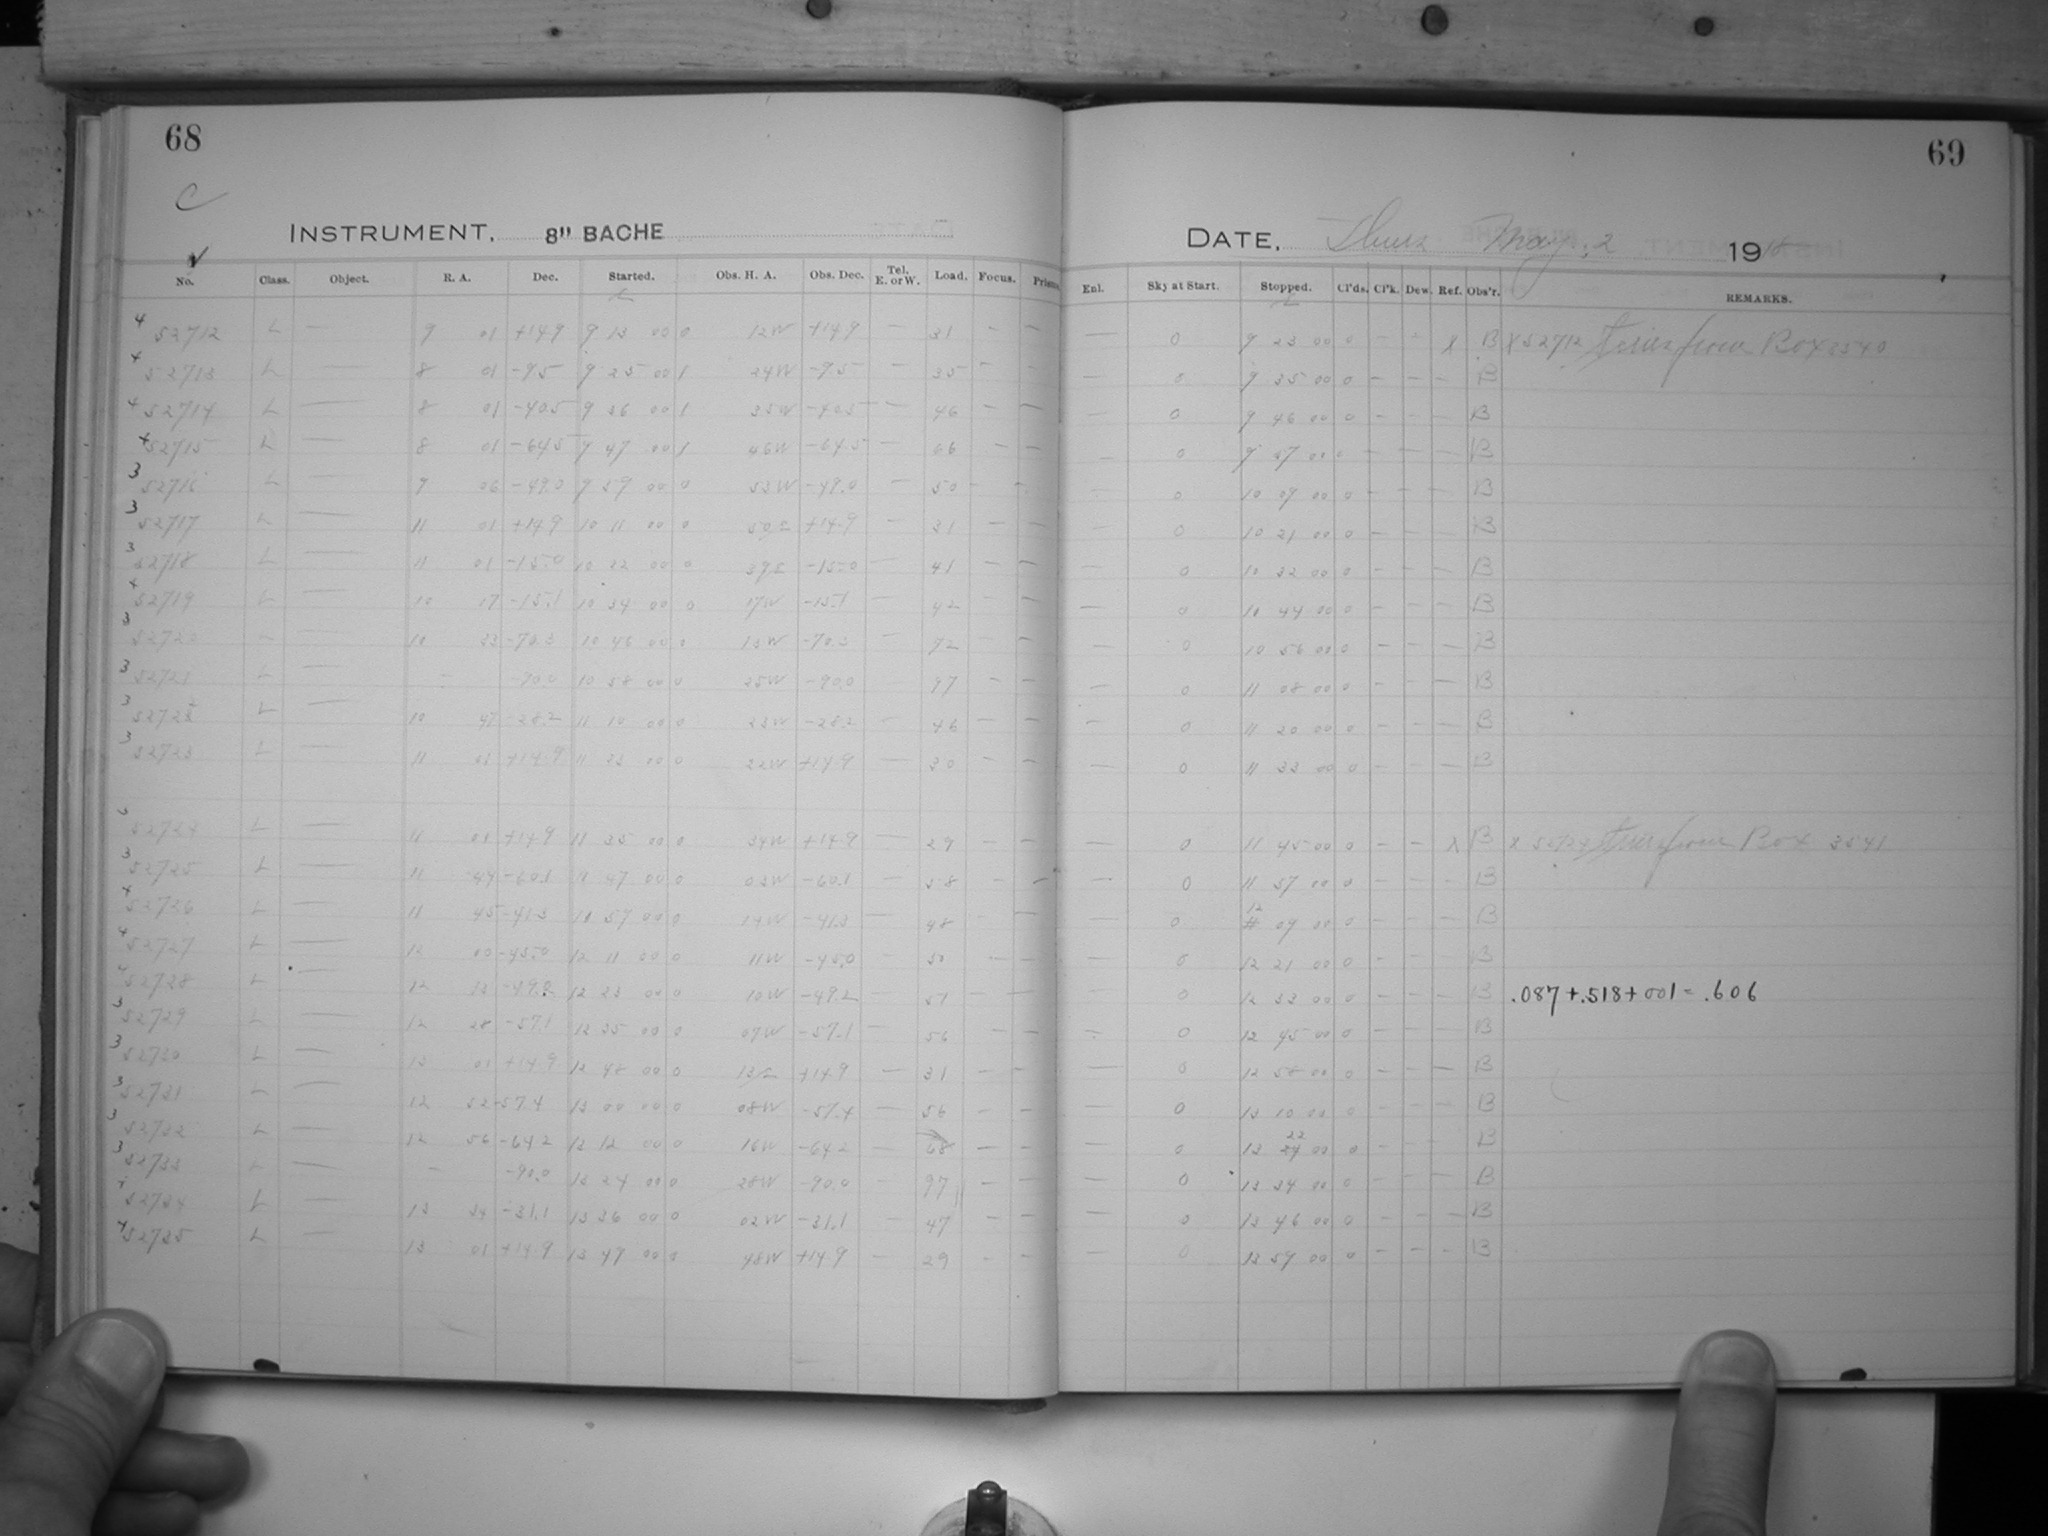 68
69
C
INSTRUMENT, 8" BACHE
DATE, Thurs May 2 1918
No. Class. Object. R. A. Dec. Started. Obs. H. A. Obs. Dec. Tel. E. or W. Load. Focus. Prism. Enl. Sky at Start. Stopped. Cl'ds. Cl'k. Dew. Ref. Obs'r. REMARKS.
4 52712 L — 9 01 +14.9 9 13 00 0 12W +14.9 — 31 — — — 0 9 23 00 0 — — X B X 52712 from Box 3540
4 52713 L — 8 01 -9.5 9 25 00 1 24W -9.5 — 35 — — — 0 9 35 00 0 — — — B
4 52714 L — 8 01 -40.5 9 36 00 1 35W -40.5 — 46 — — — 0 9 46 00 0 — — — B
4 52715 L — 8 01 -64.5 9 47 00 1 46W -64.5 — 66 — — — 0 9 57 00 0 — — — B
3 52716 L — 9 06 -49.0 9 59 00 0 53W -49.0 — 50 — — — 0 10 09 00 0 — — — B
3 52717 L — 11 01 +14.9 10 11 00 0 50E +14.9 — 31 — — — 0 10 21 00 0 — — — B
3 52718 L — 11 01 -15.0 10 22 00 0 39E -15.0 — 41 — — — 0 10 32 00 0 — — — B
4 52719 L — 10 17 -15.1 10 34 00 0 17W -15.1 — 42 — — — 0 10 44 00 0 — — — B
3 52720 — — 10 33 -70.3 10 46 00 0 13W -70.3 — 72 — — — 0 10 56 00 0 — — — B
3 52721 L — — -90.0 10 58 00 0 25W -90.0 — 97 — — — 0 11 08 00 0 — — — B
3 52722 L — 10 47 -28.2 11 10 00 0 23W -28.2 — 46 — — — 0 11 20 00 0 — — — B
3 52723 L — 11 01 +14.9 11 23 00 0 22W +14.9 — 30 — — — 0 11 33 00 0 — — — B
3 52724 L — 11 01 +14.9 11 35 00 0 34W +14.9 — 29 — — — 0 11 45 00 0 — — X B X 52724 from Box 3541
3 52725 L — 11 44 -60.1 11 47 00 0 03W -60.1 — 58 — — — 0 11 57 00 0 — — — B
4 52726 L — 11 45 -41.3 11 59 00 0 14W -41.3 — 48 — — — 0 12 09 00 0 — — — B
4 52727 L — 12 00 -45.0 12 11 00 0 11W -45.0 — 50 — — — 0 12 21 00 0 — — — B
4 52728 L — 12 13 -49.2 12 23 00 0 10W -49.2 — 51 — — — 0 12 33 00 0 — — — B .087+.518+001=.606
3 52729 L — 12 28 -57.1 12 35 00 0 07W -57.1 — 56 — — — 0 12 45 00 0 — — — B
3 52730 L — 13 01 +14.9 12 48 00 0 13E +14.9 — 31 — — — 0 12 58 00 0 — — — B
3 52731 L — 12 52 -57.4 13 00 00 0 08W -57.4 — 56 — — — 0 13 10 00 0 — — — B
3 52732 L — 12 56 -64.2 13 12 00 0 16W -64.2 — 68 — — — 0 13 22 00 0 — — — B
3 52733 L — — -90.0 13 24 00 0 28W -90.0 — 97 — — — 0 13 34 00 0 — — — B
52734 L — 13 34 -31.1 13 36 00 0 02W -31.1 — 47 — — — 0 13 46 00 0 — — — B
4 52735 L — 13 01 +14.9 13 49 00 0 48W +14.9 — 29 — — — 0 13 59 00 0 — — — B